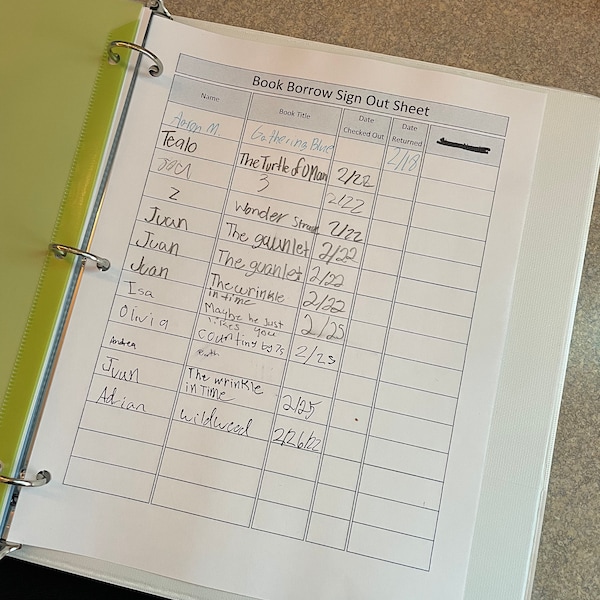 Book Borrow Sign Out Sheet
Name Book Title Date Checked Out Date Returned
Aaron M. Gathering Blue 2/18
Tealo The Turtle of Oman 2/22
3 2/22
Z Wonder 2/22
Juan The gaunlet 2/22
Juan The guanlet 2/22
Juan The wrinkle in time 2/22
Isa Maybe he Just likes you 2/25
Olivia Counting by 7s 2/25
Andrea
Juan The wrinkle in Time 2/25
Adrian wildwood 2/26/22